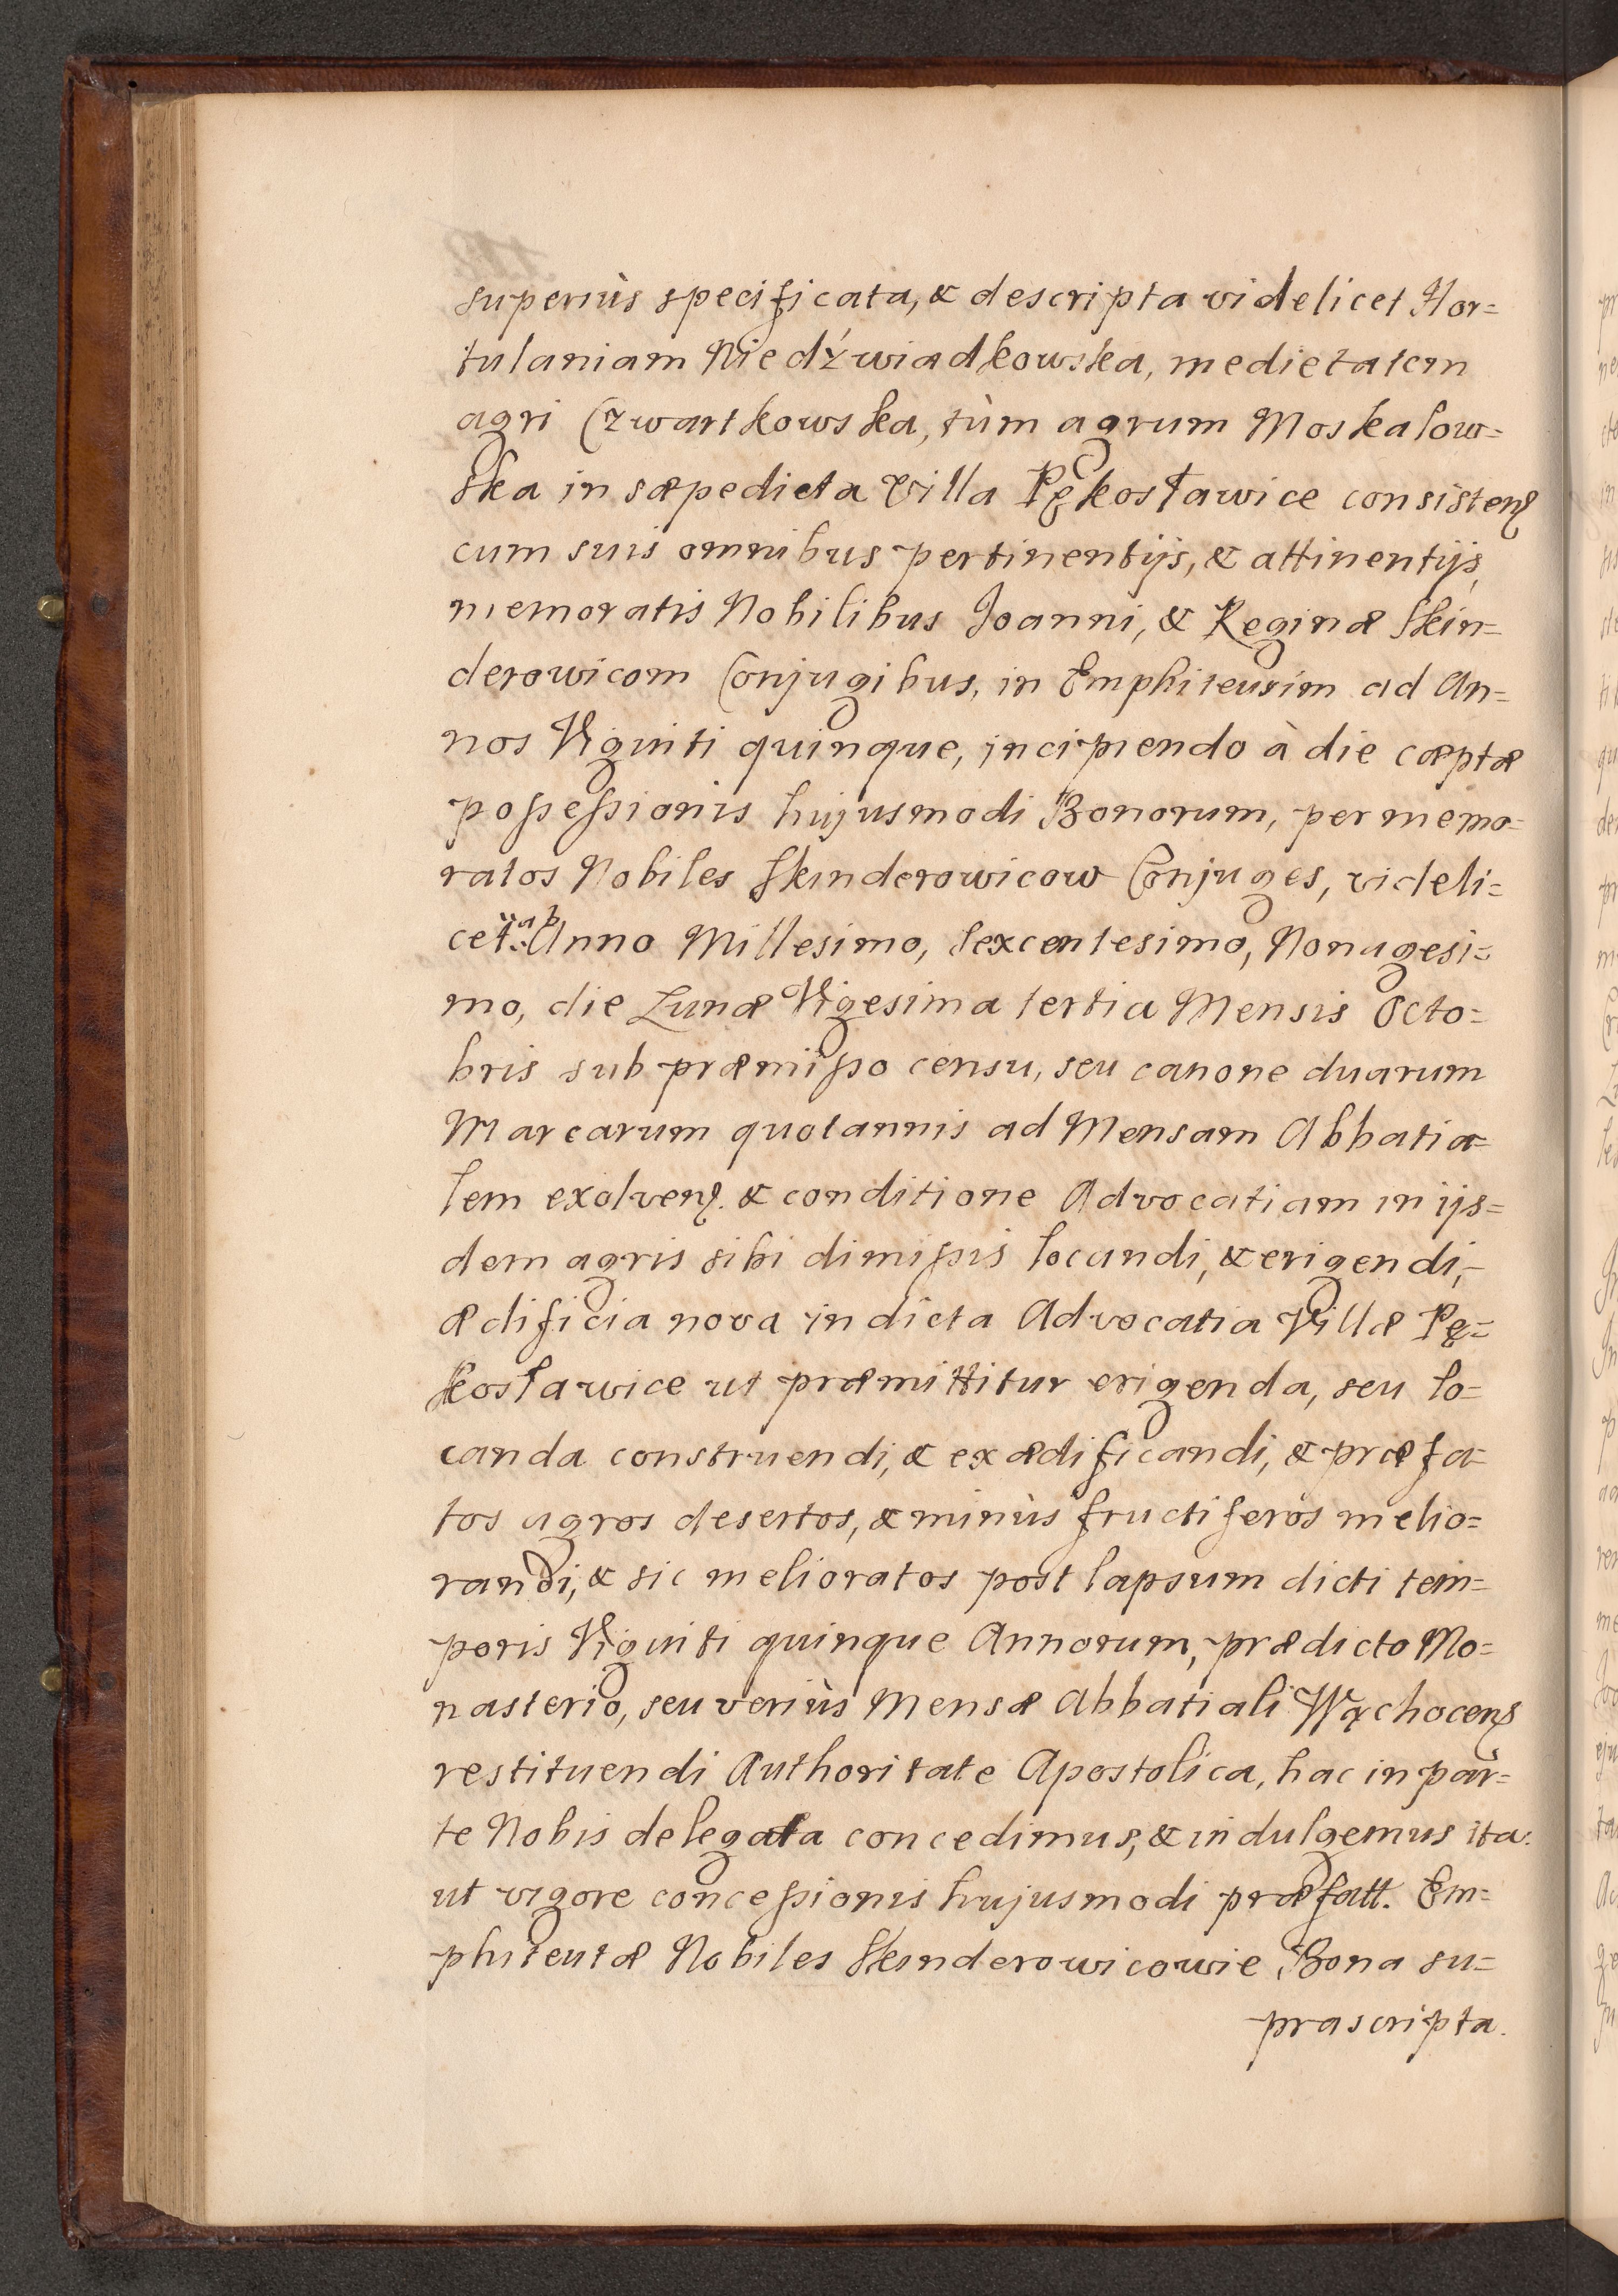 superiùs specificata, & descripta videlicet Hor=
tulaniam Niedźwiadkowska, medietatem
agri Czwartkowska, tùm agrum Moskalow=
ska in sæpedicta Villa Pękosławice consisteñ
cum suis omnibus pertinentijs, & attinentijs,
memoratis Nobilibus Joanni, & Reginæ Skin=
derowicom Conjugibus, in Emphiteusim ad An=
nos Viginti quinque, incipiendo à die cæptæ
poßeßionis hujusmodi Bonorum, per memo=
ratos Nobiles Skinderowicow Conjuges, videli=
cet: ab Anno Millesimo, Sexcentesimo, Nonagesi=
mo, die Lunæ Vigesima tertia Mensis Octo=
bris sub præmißo censu, seu canone duarum
Marcarum quotannis ad Mensam Abbatia=
lem exolveñ. & conditione Advocatiam in ijs=
dem agris sibi dimißis locandi, & erigendi,
ædificia nova in dicta Advocatia Villæ Pę=
kosławice ut præmittitur erigenda, seu lo=
canda construendi, & exædificandi, & præfa=
tos agros desertos, & minùs fructiferos melio=
randi, & sic melioratos post lapsum dicti tem=
poris Viginti quinque Annorum, prædicto Mo=
nasterio, seu veriùs Mensæ Abbatiali Wąchoceñ
restituendi Authoritate Apostolica, hac in par=
te Nobis delegata concedimus, & indulgemus ita:
ut vigore conceßionis hujusmodi præfatt. Em=
phiteutæ Nobiles Skinderowicowie Bona su=
prascripta.